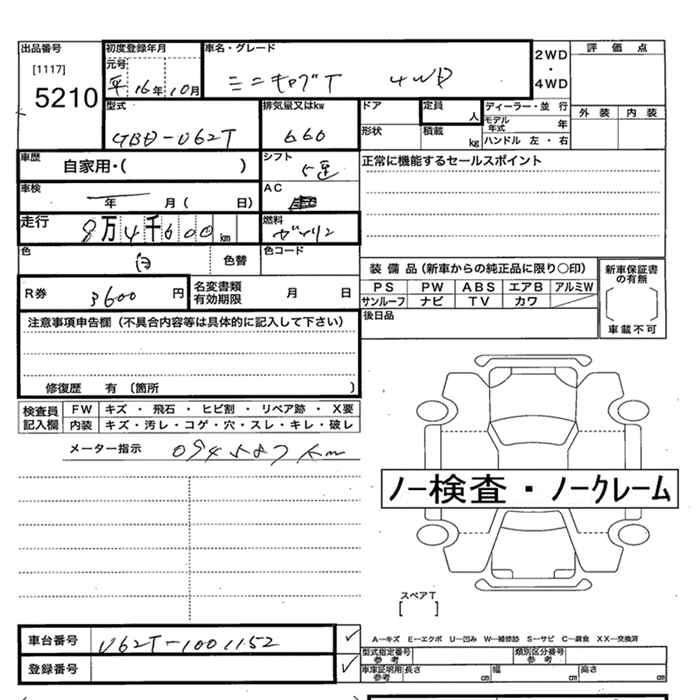 出品番号 初度登録年月 車名・グレード 2WD・4WD 評価点
[1117] 元号
5210 平16年10月 ミニキャブT 4WD 外装 内装
型式 排気量又はkw ドア 定員 人 ディーラー・並行
GBD-U62T 660 形状 積載 kg モデル年式 年
ハンドル 左・右
車歴 自家用・( ) シフト 5速 正常に機能するセールスポイント
車検 年 月( 日) AC
走行 8万4千600km 燃料 ガソリン
色 白 色替 色コード
装備品(新車からの純正品に限り○印) 新車保証書の有無
R券 3600円 名変書類有効期限 月 日 PS PW ABS エアB アルミW
サンルーフ ナビ TV カワ
注意事項申告欄(不具合内容等は具体的に記入して下さい) 後日品 車載不可
修復歴 有 〔箇所 〕
検査員記入欄 FW キズ・飛石・ヒビ割・リペア跡・X要
内装 キズ・汚レ・コゲ・穴・スレ・キレ・破レ
メーター指示 094587km
ノー検査・ノークレーム
スペアT
[ ]
車台番号 U62T-1001152 A―キズ E―エクボ U―凹み W―補修跡 S―サビ C―腐食 XX―交換済
登録番号 型式指定番号 参考 類別区分番号 参考
車庫証明用参考 長さ cm 幅 cm 高さ cm